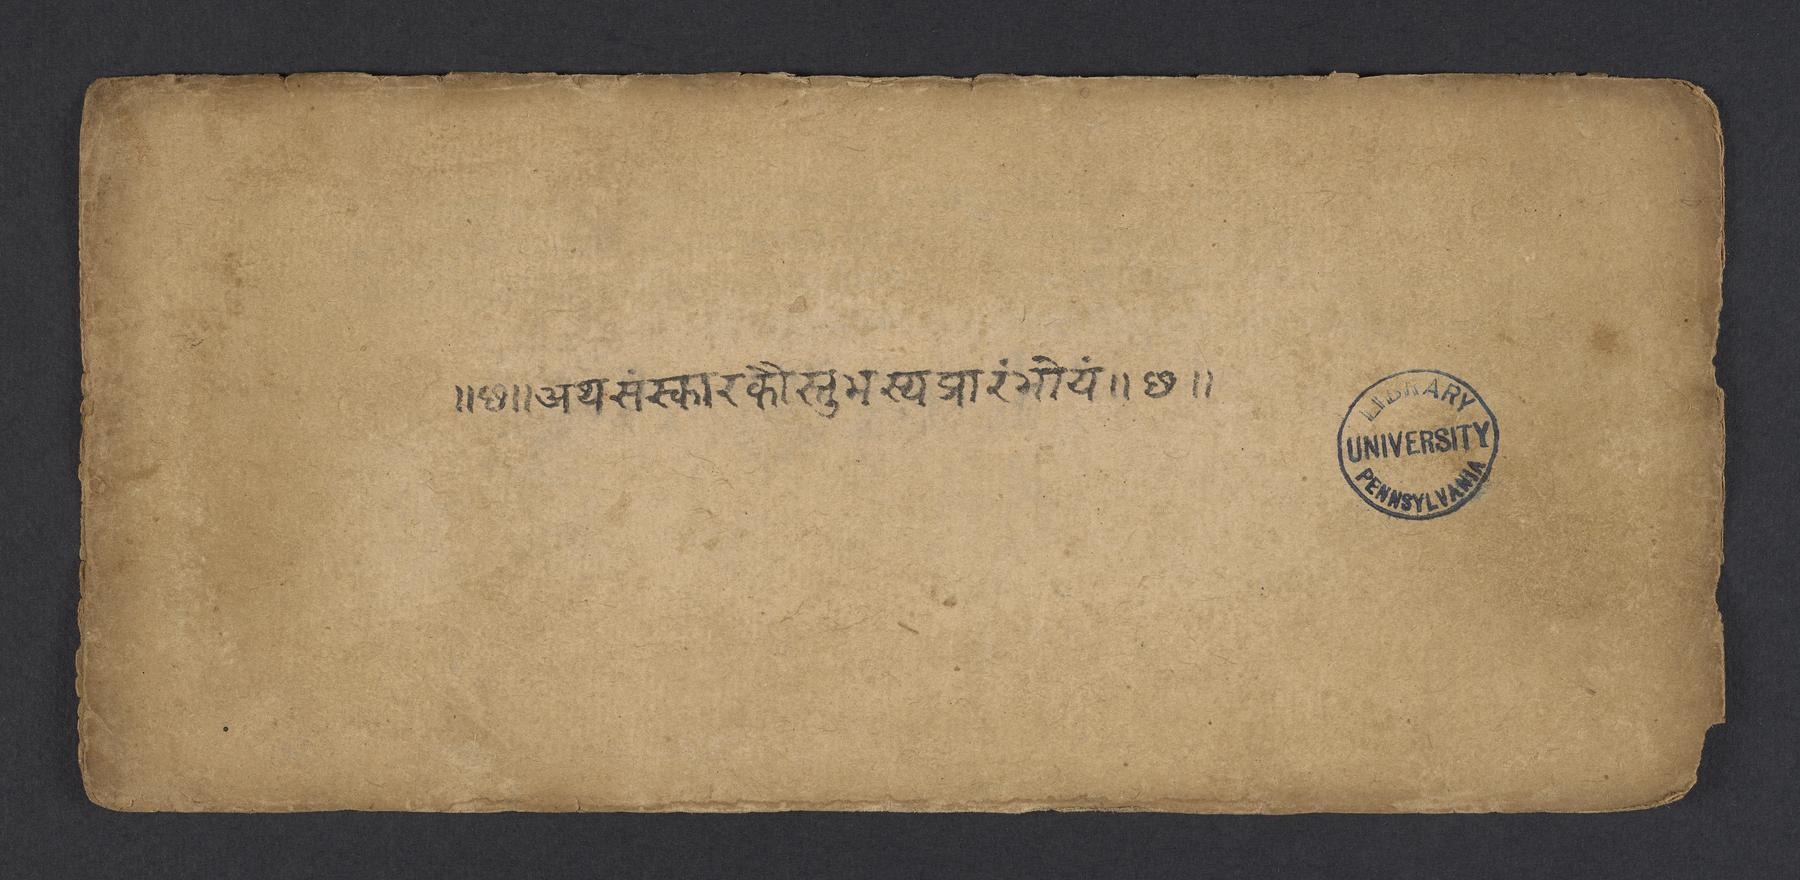 ॥छ॥अथसंस्कारकौस्तुभस्यप्रारंभोयं॥छ॥
LIBRARY
UNIVERSITY
PENNSYLVANIA